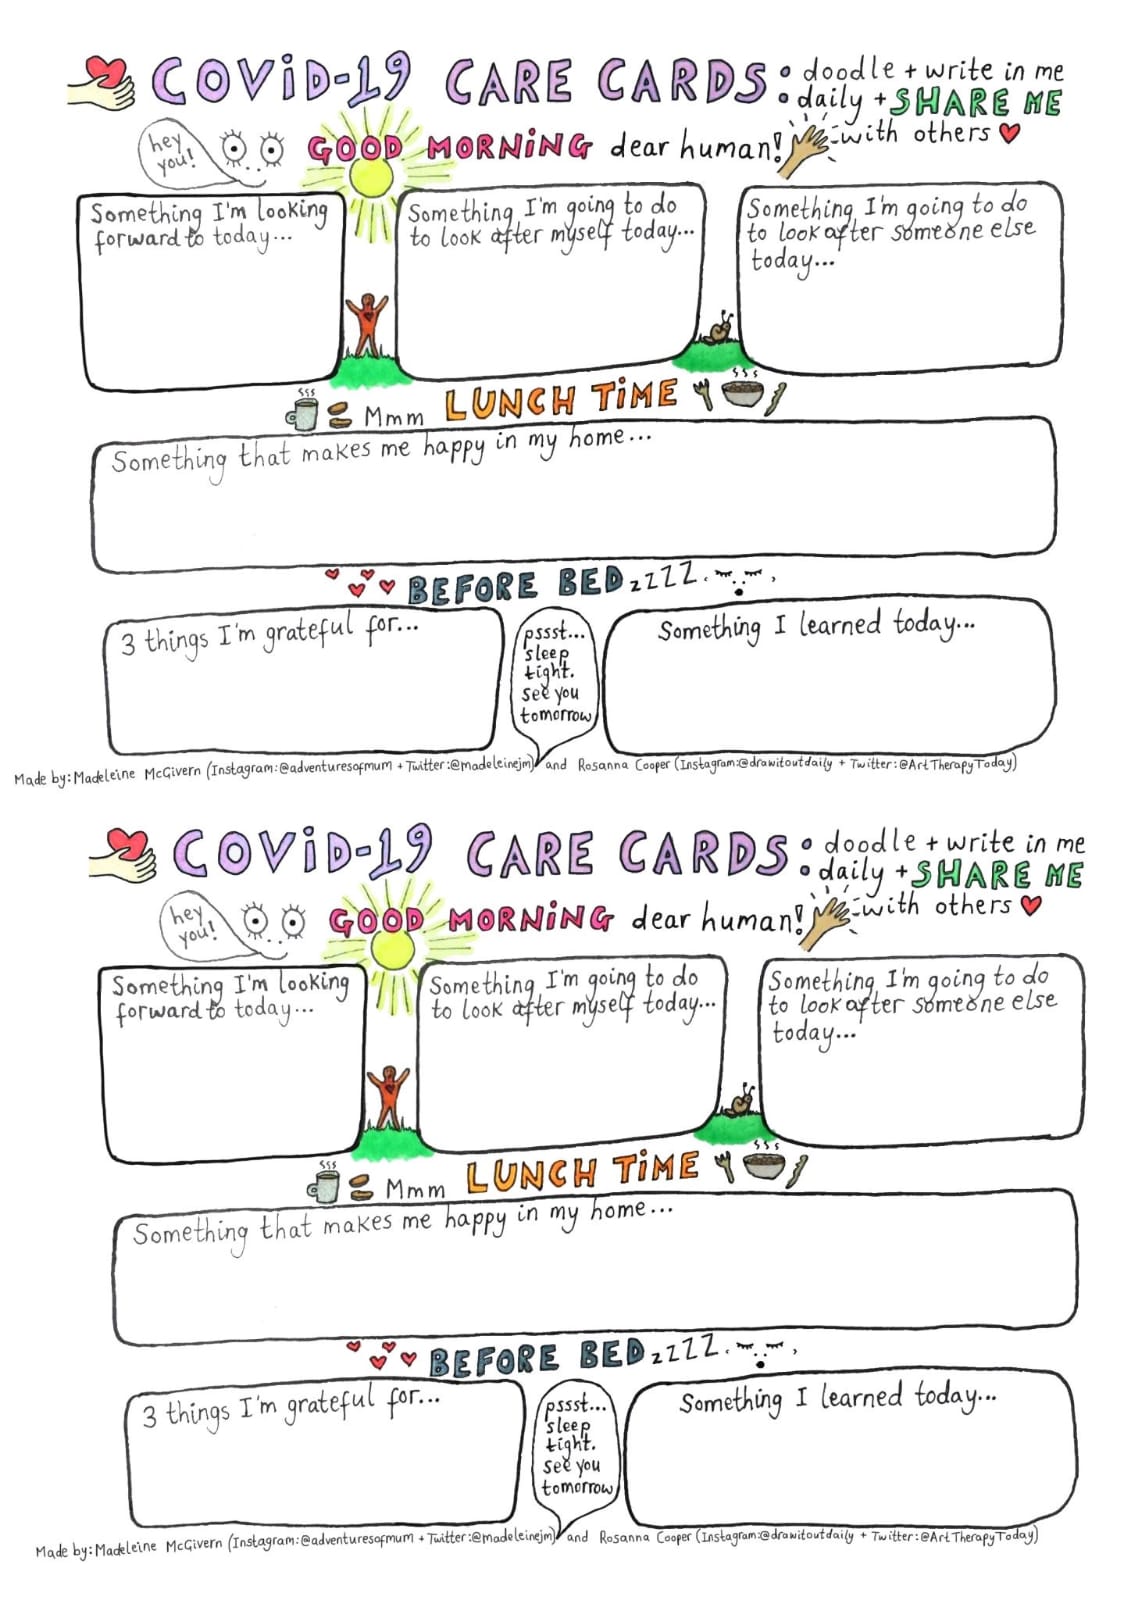 COViD-19 CARE CARDS: doodle + write in me
daily + SHARE ME
with others
hey
you!
GOOD MORNiNG dear human!
Something I'm looking
forward to today...
Something I'm going to do
to look after myself today...
Something I'm going to do
to look after someone else
today...
Mmm LUNCH TiME
Something that makes me happy in my home...
BEFORE BED zzzzz
3 things I'm grateful for...
pssst...
sleep
tight.
see you
tomorrow
Something I learned today...
Made by: Madeleine McGivern (Instagram:@adventuresofmum + Twitter:@madeleinejm) and Rosanna Cooper (Instagram:@drawitoutdaily + Twitter:@ArtTherapyToday)
COViD-19 CARE CARDS: doodle + write in me
daily + SHARE ME
with others
hey
you!
GOOD MORNiNG dear human!
Something I'm looking
forward to today...
Something I'm going to do
to look after myself today...
Something I'm going to do
to look after someone else
today...
Mmm LUNCH TiME
Something that makes me happy in my home...
BEFORE BED zzzzz
3 things I'm grateful for...
pssst...
sleep
tight.
see you
tomorrow
Something I learned today...
Made by: Madeleine McGivern (Instagram:@adventuresofmum + Twitter:@madeleinejm) and Rosanna Cooper (Instagram:@drawitoutdaily + Twitter:@ArtTherapyToday)